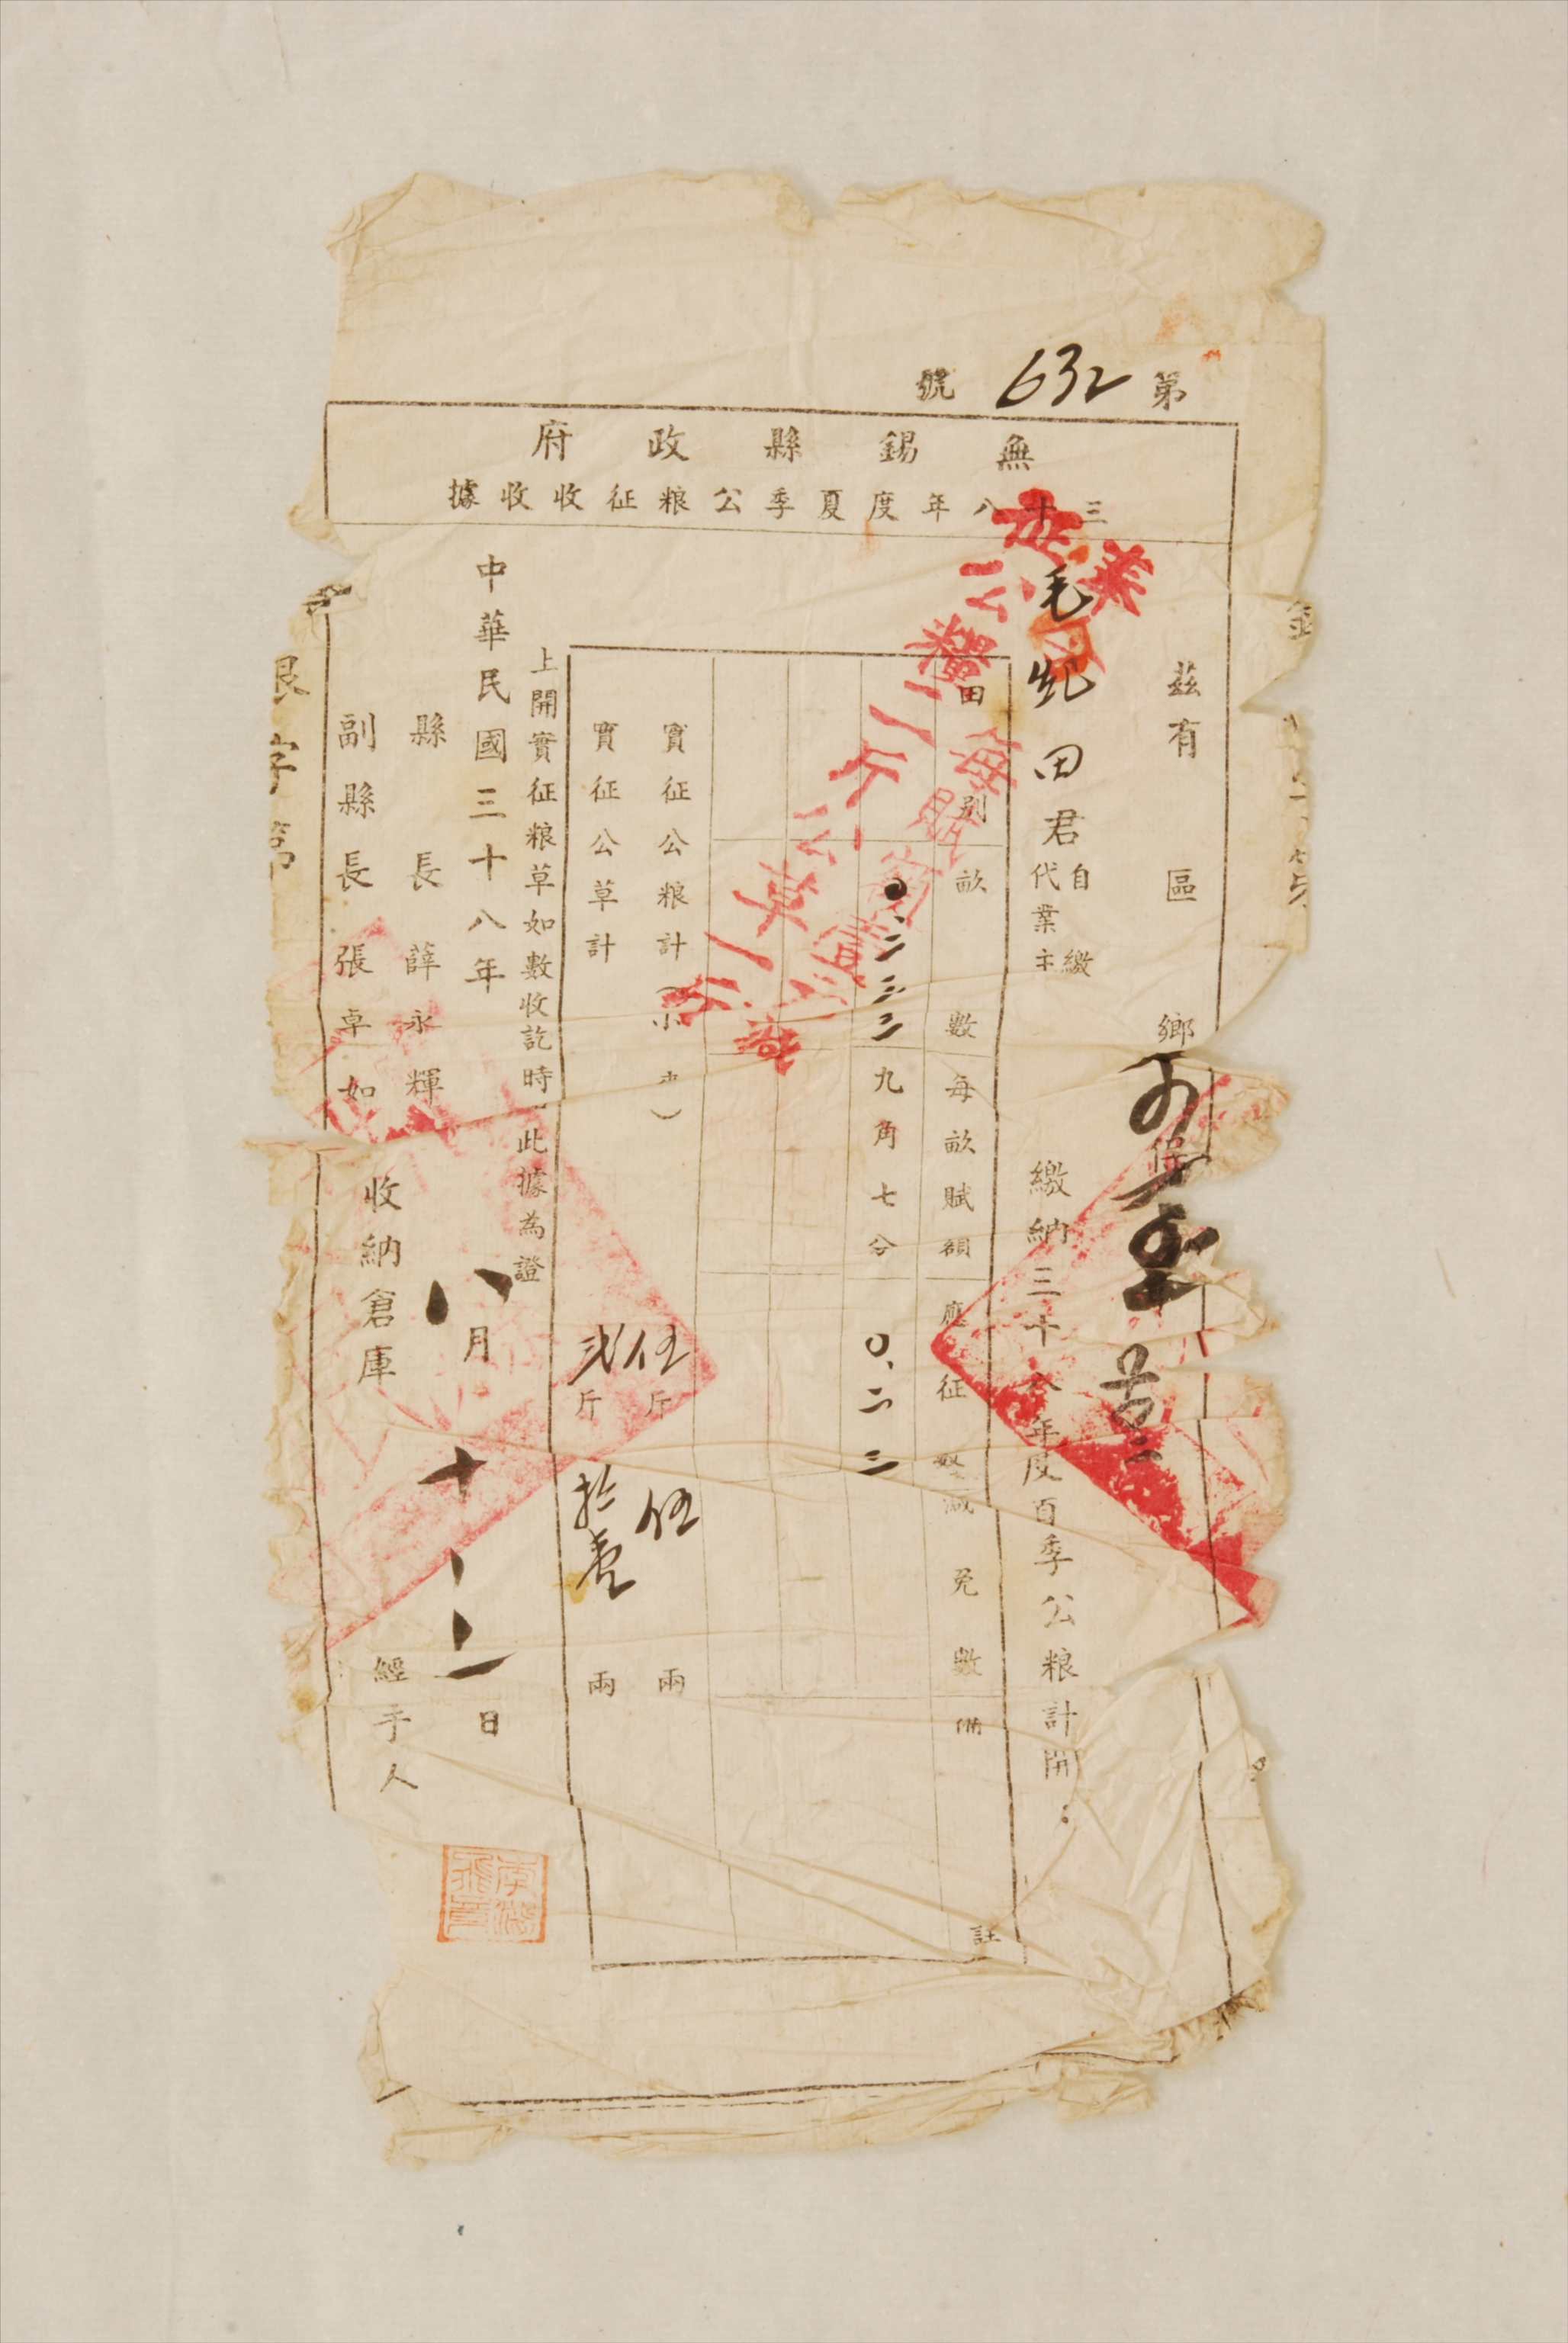 第632號
無錫縣政府
三十八年度夏季公粮征收收據
茲有 區 鄉 保
毛 田君 自繳 代業主 繳納三十八年度百季公粮計開：
田別 畝數 每畝賦額 應征 減免數 備註
〇、二三三 九角七分 〇、二三
實征公粮計（小 ） 伍斤 伍 兩
實征公草計 弍斤 拾壹 兩
上開實征粮草如數收訖時 此據為證
中華民國三十八年 八月 十 日
縣長 薛永輝
副縣長 張卓如
收納倉庫 經手人
公糧二斤
公草一斤
每